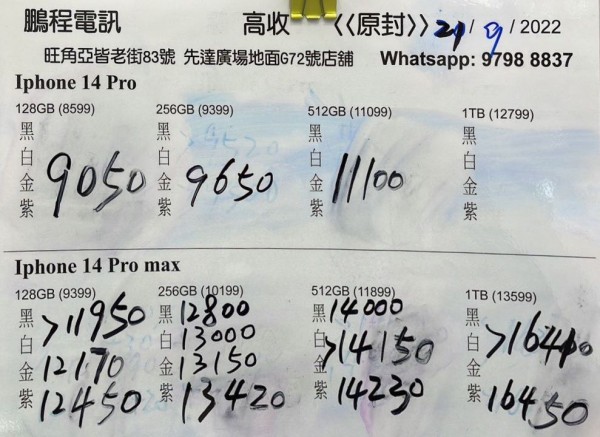 鵬程電訊 高收 《《原封》》 21/9/2022
旺角亞皆老街83號 先達廣場地面G72號店舖 Whatsapp: 9798 8837
Iphone 14 Pro
128GB (8599) 256GB (9399) 512GB (11099) 1TB (12799)
黑 黑 黑 黑
白 白 白 白
9050 9650 11100
金 金 金 金
紫 紫 紫 紫
Iphone 14 Pro max
128GB (9399) 256GB (10199) 512GB (11899) 1TB (13599)
黑 >11950 黑 12800 黑 14000 黑
白 白 13000 白 >14150 白 >16400
金 12170 金 13150 金 金
紫 12450 紫 13420 紫 14230 紫 16450